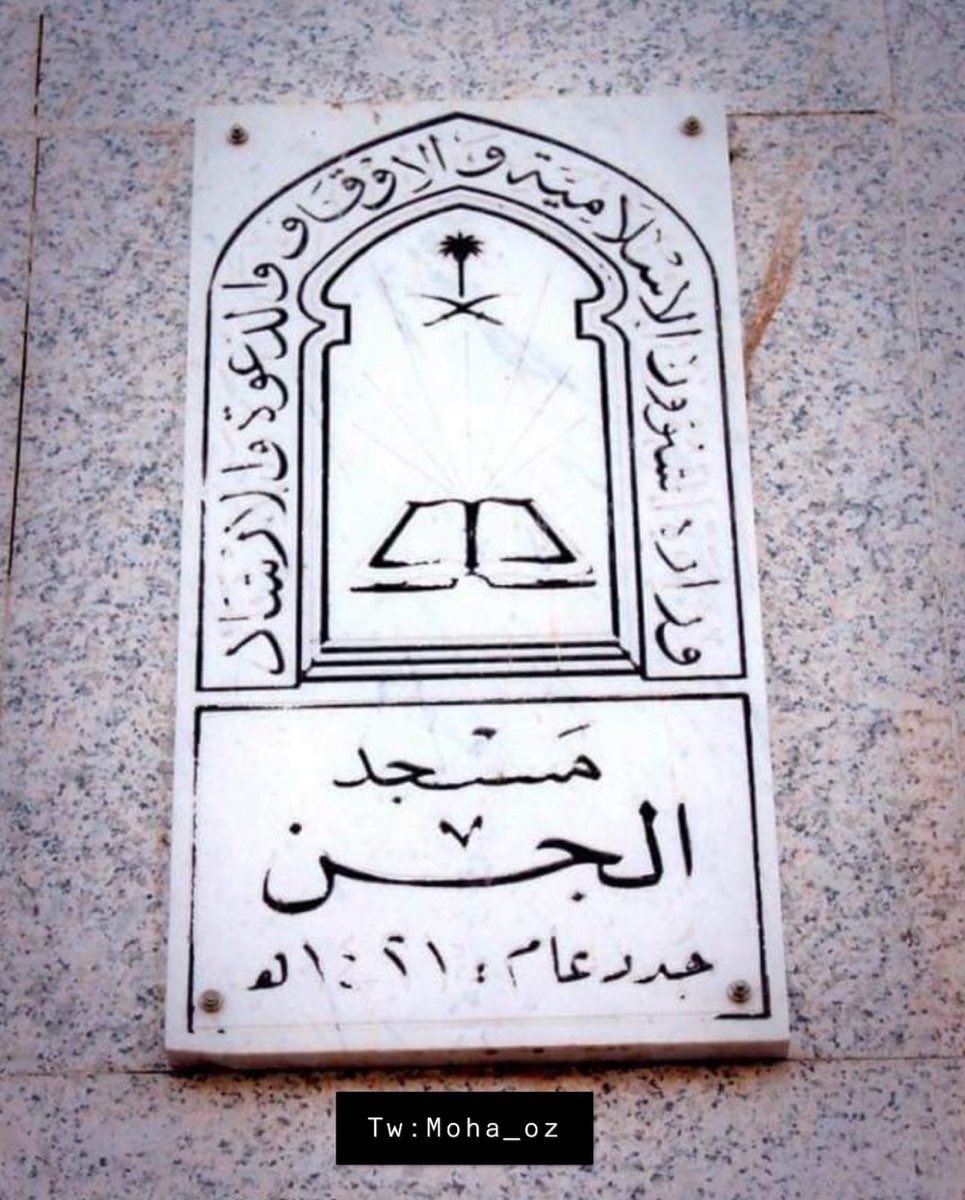 وزارة الشؤون الإسلامية و الاوقاف والدعوة والإرشاد
مسجد
الجن
جدد عام : ١٤٢١هـ
Tw:Moha_oz